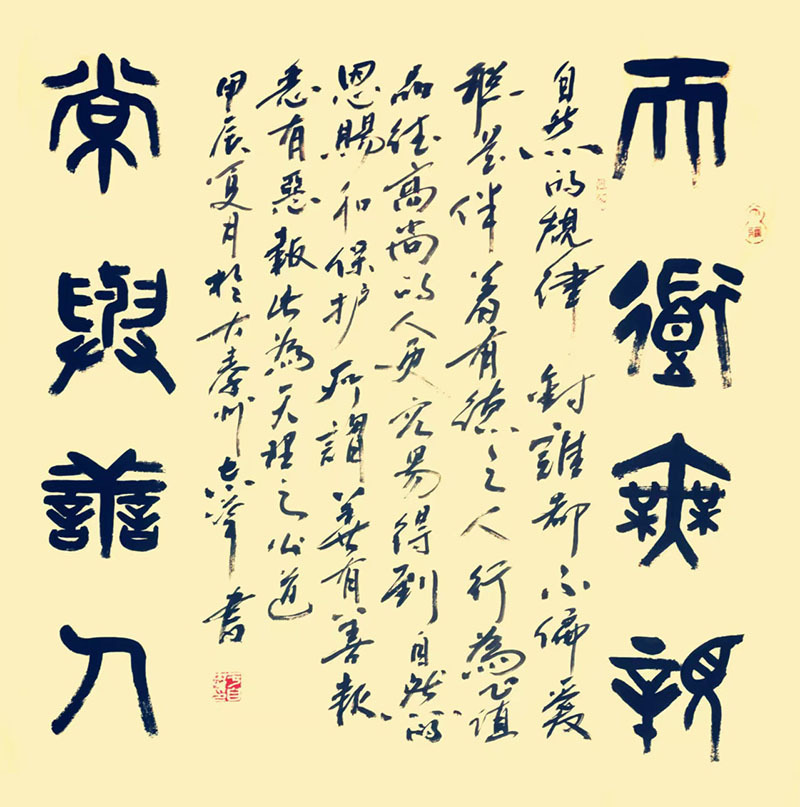 天道無親
自然的規律對誰都不偏愛
伴着有德之人行為正值
品德高尚的人更容易得到自然的
恩賜和保护所謂善有善報
恶有惡報此為天理之公道
甲辰夏月於古秦州書
常與善人